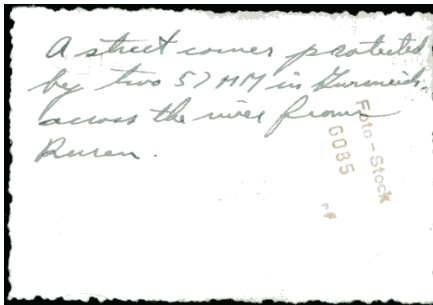 A street corner protected
by two 57 MM in
across the river from
Duren.
Foto-Stock
G085